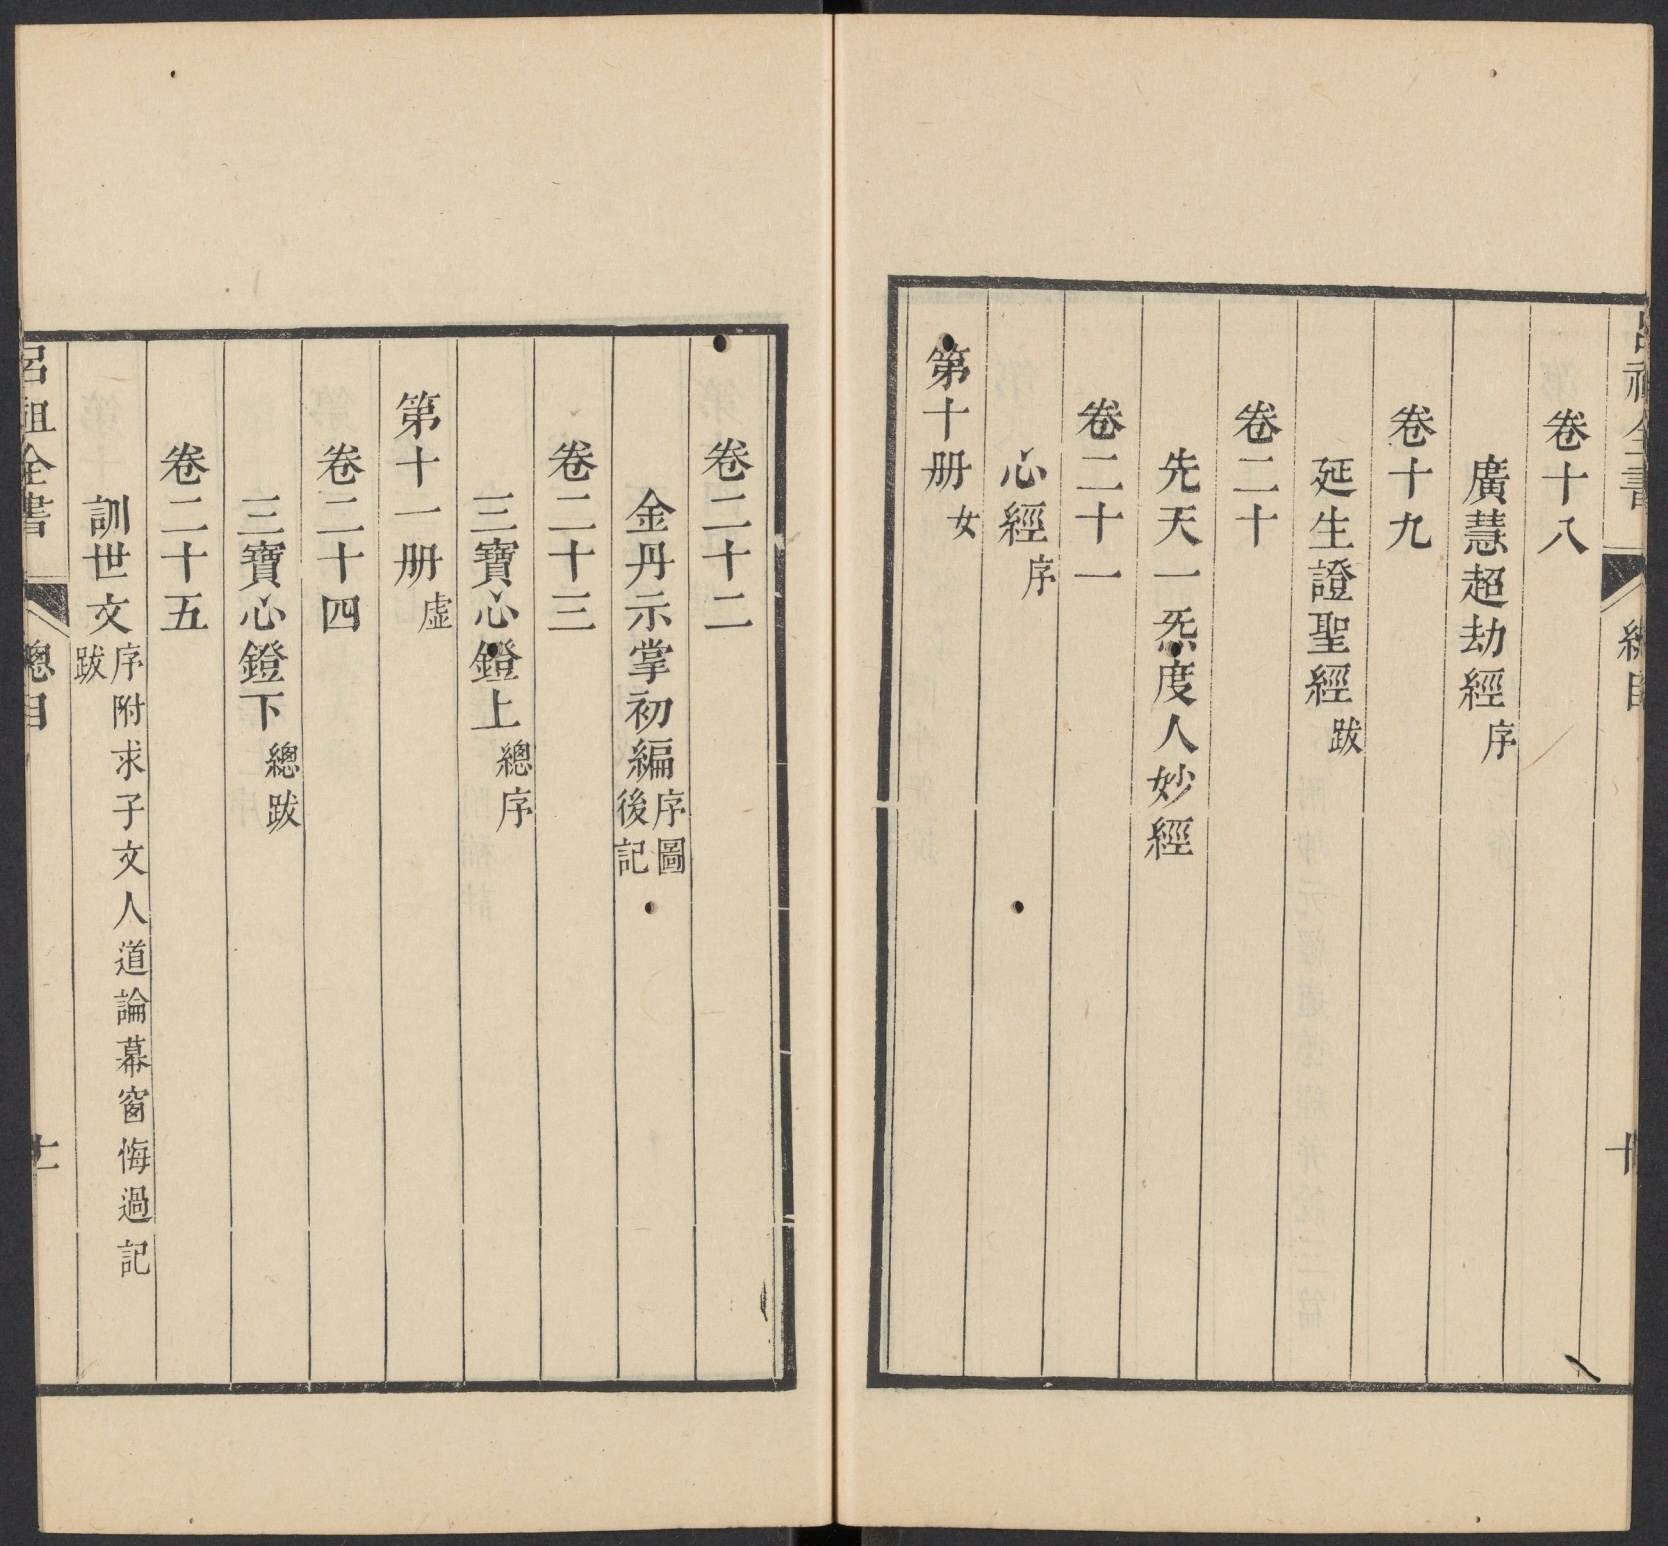 呂祖全書 總目 十
卷十八
廣慧超劫經序
卷十九
延生證聖經跋
卷二十
先天一炁度人妙經
卷二十一
心經序
第十册女
卷二十二
金丹示掌初編序圖後記
卷二十三
三寶心鐙上總序
第十一册虛
卷二十四
三寶心鐙下總跋
卷二十五
訓世文序附求子文人道論幕窗悔過記跋
呂祖全書 總目 十一